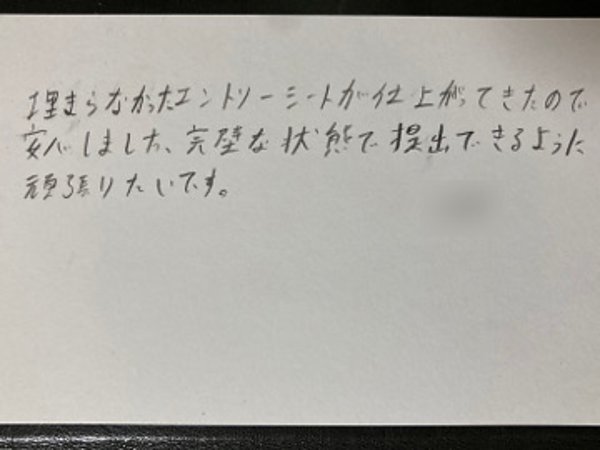 埋まらなかったエントリーシートが仕上がってきたので
安心しました、完璧な状態で提出できるように
頑張りたいです。